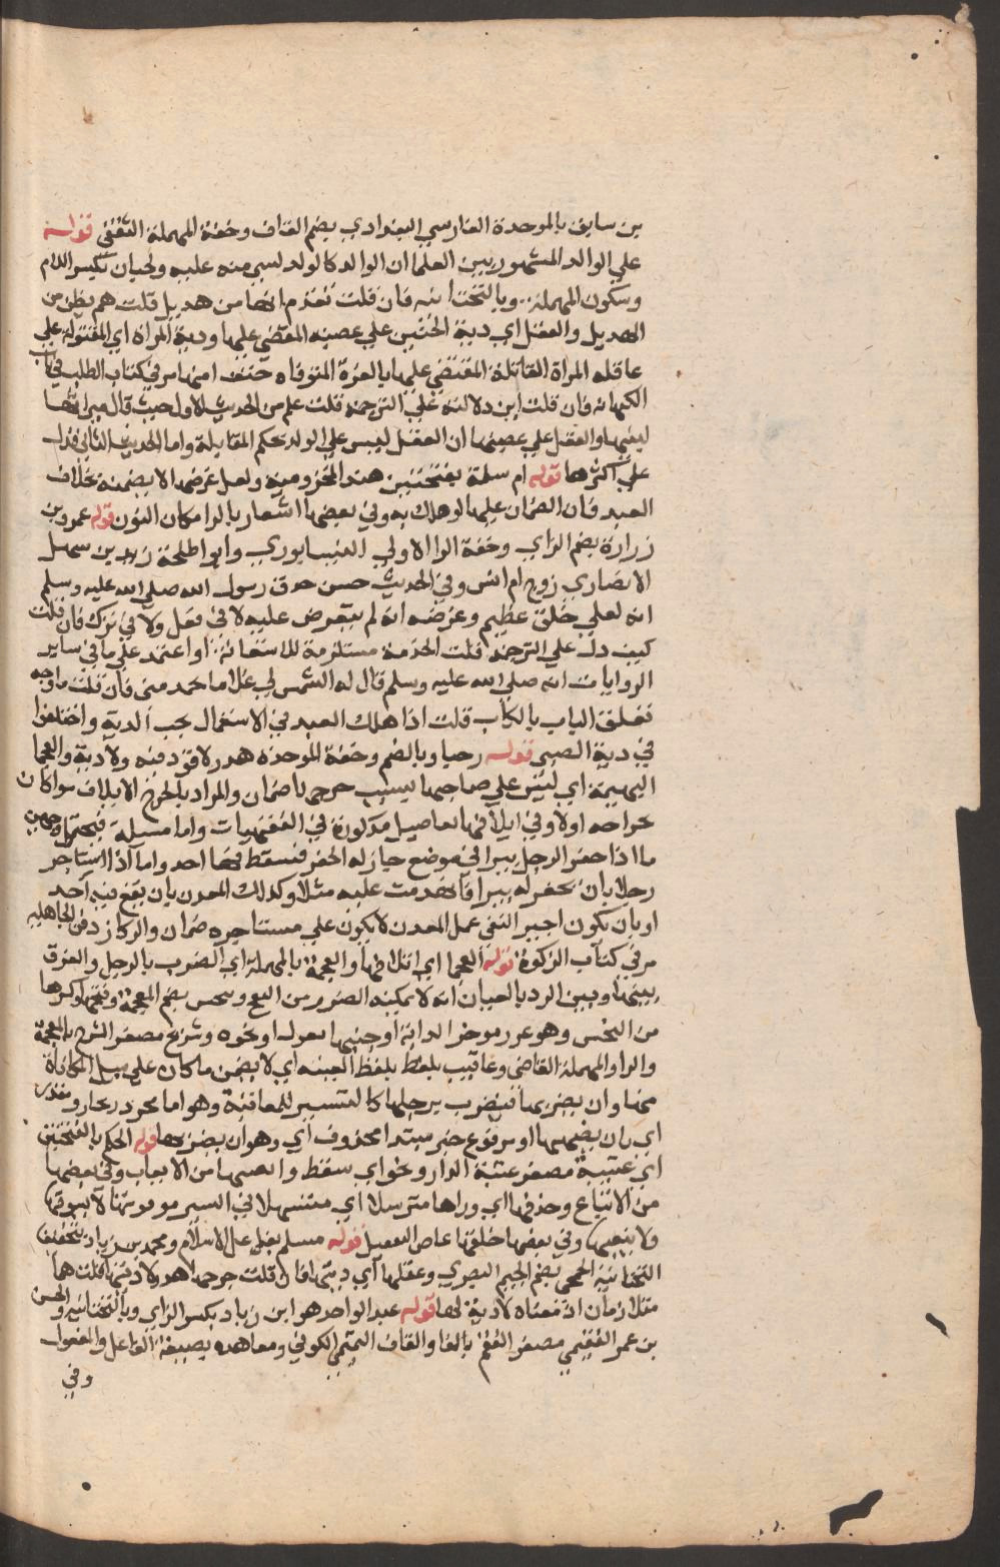 بن سابق بالموحدة الفارسي البغدادي بضم القاف وخفة المهملة الثقفي قوله
علي الوالد المشهور بين العلما ان الوالد كالولد ليس منه عليه ولحيان بكسر اللام
وسكون المهملة وبالتحتانيه فان قلت تقدم انها من هديل قلت هم بطن من
الهديل والعقل اي دية الجنين علي عصبه المقضي عليها ودية المراة اي المقتولة علي
عاقله المراة القاتلة المقتضي عليها بالغرة المتوفاه حتف انفها مر في كتاب الطب في باب
الكهانه فان قلت اين دلالته علي الترجمة قلت علم من الحديث الاول حيث قال ميراثها
لبنيها والعقل علي عصبتها ان العقل ليس علي الولد بحكم المقابلة واما الحديث الثاني فدل
علي اكثرها قوله ام سلمة بفتحتين هند المخزومية ولعل غرضها الا يضمنه بخلاف
العبد فان الضمان عليها لو هلك به وفي بعضها اشعار بالرا مكان النون قوله عمرو بن
زرارة بضم الزاي وخفة الرا الاولي النيسابوري وابو طلحة زيد بن سهل
الانصاري زوج ام انس وفي الحديث حسن خلق رسول الله صلي الله عليه وسلم
انه لعلي خلق عظيم وغرضه انه لم يتعرض عليه لا في فعل ولا في ترك فان قلت
كيف دل علي الترجمة قلت الخدمة مستلزمة للاستعانة او اعتمد علي ما في ساير
الروايات انه صلي الله عليه وسلم قال له التمس لي غلاما يخدمني فان قلت ما وجه
تعلق الباب بالكتاب قلت اذا هلك العبد في الاستعمال يجب الدية واختلفوا
في دية الصبي قوله وبالضم وخفة الموحدة هدر لا قود فيه ولا دية والعجما
البهيمة اي ليس علي صاحبها بسبب جرحها ضمان والمراد بالجرح الاتلاف سوا كان
جراحه اولا وفي اتلافها تفاصيل مذكورة في الفقهيات واما مسيلة فيحتمل وجهين
ما اذا حفر الرجل بيرا في موضع جاز له الحفر فسقط فيها احد واما اذا استاجر
رجلا بان يحفر له بيرا فانهدمت عليه مثلا وكذلك المعدن بان يقع فيه احد
او بان يكون اجير التقي عمل المعدن لا يكون علي مستاجره ضمان والركاز دفن الجاهليه
مر في كتاب الزكوة قوله العجما اي اتلافها والنفحة بالمهملة اي الضرب بالرجل والفرق
بينها وبين الرد بالعنان انه لا يمكنه الضرر من النفح وينخس بضم المعجمة وفتحها وكسرها
من النخس وهو غرز موخر الدابة او جنبها بعود او نحوه وشريح مصغر الشرح بالمعجمة
والرا والمهملة القاضي وعاقبت بلفظ بلفظ الغيبه اي لا يضمن ما كان علي سبيل المكافاة
منها وان يضربها فيضرب برجلها كالتفسير للمعاقبة وهو اما مجرور بجار مقدر
اي بان يضربها او مرفوع خبر مبتدا محذوف اي وهو ان يضربها قوله الحكم بالفتحتين
اي عتيبة مصغر عتبة الدار ونحو اي سقط واتبعها من الاتعاب وفي بعضها
من الاتباع وخلفها اي وراها مترسلا اي متسهلا في السير موفوتها لا يسوقها
ولا يتعبها وفي بعضها خلفها قوله مسلم بفاعل الاسلام ومحمد بن زياد بتخفيف
التحتانية الجمحي بضم الجيم البصري وعقلها اي ديتها فان قلت جرحها هدر لا ديتها قلت هما
متلازمان اذ معناه لا دية لها قوله عبد الواحد هو ابن زياد بكسر الزاي وبالتحتانيه والحسن
بن عمر الفقيمي مصغر الفقم بالفا والقاف التميمي الكوفي ومعاهده بصيغة الفاعل والمفعول
وفي